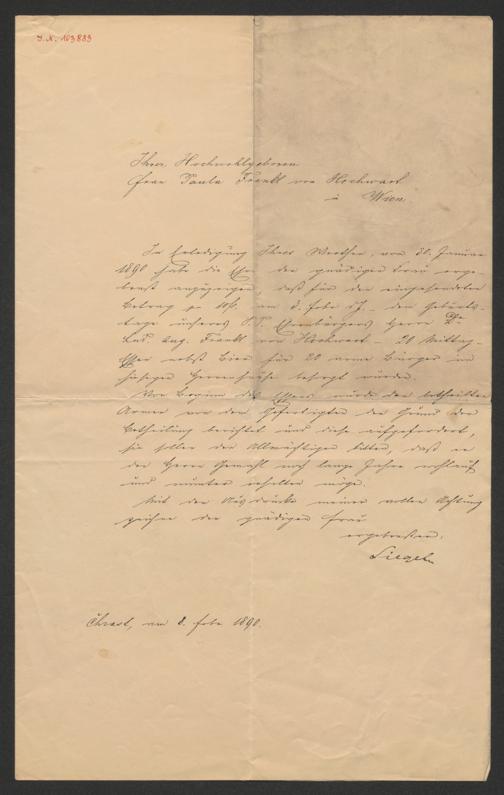 I. N. 103883
Ihrer Hochwohlgeboren
Frau Paula Frankl von Hochwart
in Wien
In Erledigung Ihres Werthen, von 30. Januar
1890 habe die Ehre der gnädigen Frau erge-
benst anzuzeigen, daß für den eingesendeten
Betrag pr 10 fl. am 3. Febr. d. J. – dem Geburts-
tage unseres P. T. Ehrenbürgers Herrn Dr
Lud. Aug. Frankl von Hochwart – 20 Mittag-
Essen nebst Bier für 20 arme Bürger im
hiesigen Herrenhause besorgt wurden.
Vor Beginn des Essens wurde den betheilten
Armen vor den Gefertigten der Grund der
Betheilung berichtet und diese aufgefordert,
sie sollen den Allmächtigen bitten, daß er
den Herrn Gemahl noch lange Jahre
und munter erhalten möge.
Mit dem Ausdrucke meiner vollen Achtung
zeichne der gnädigen Frau
ergebenster
Chrast, am 8. Febr. 1890.